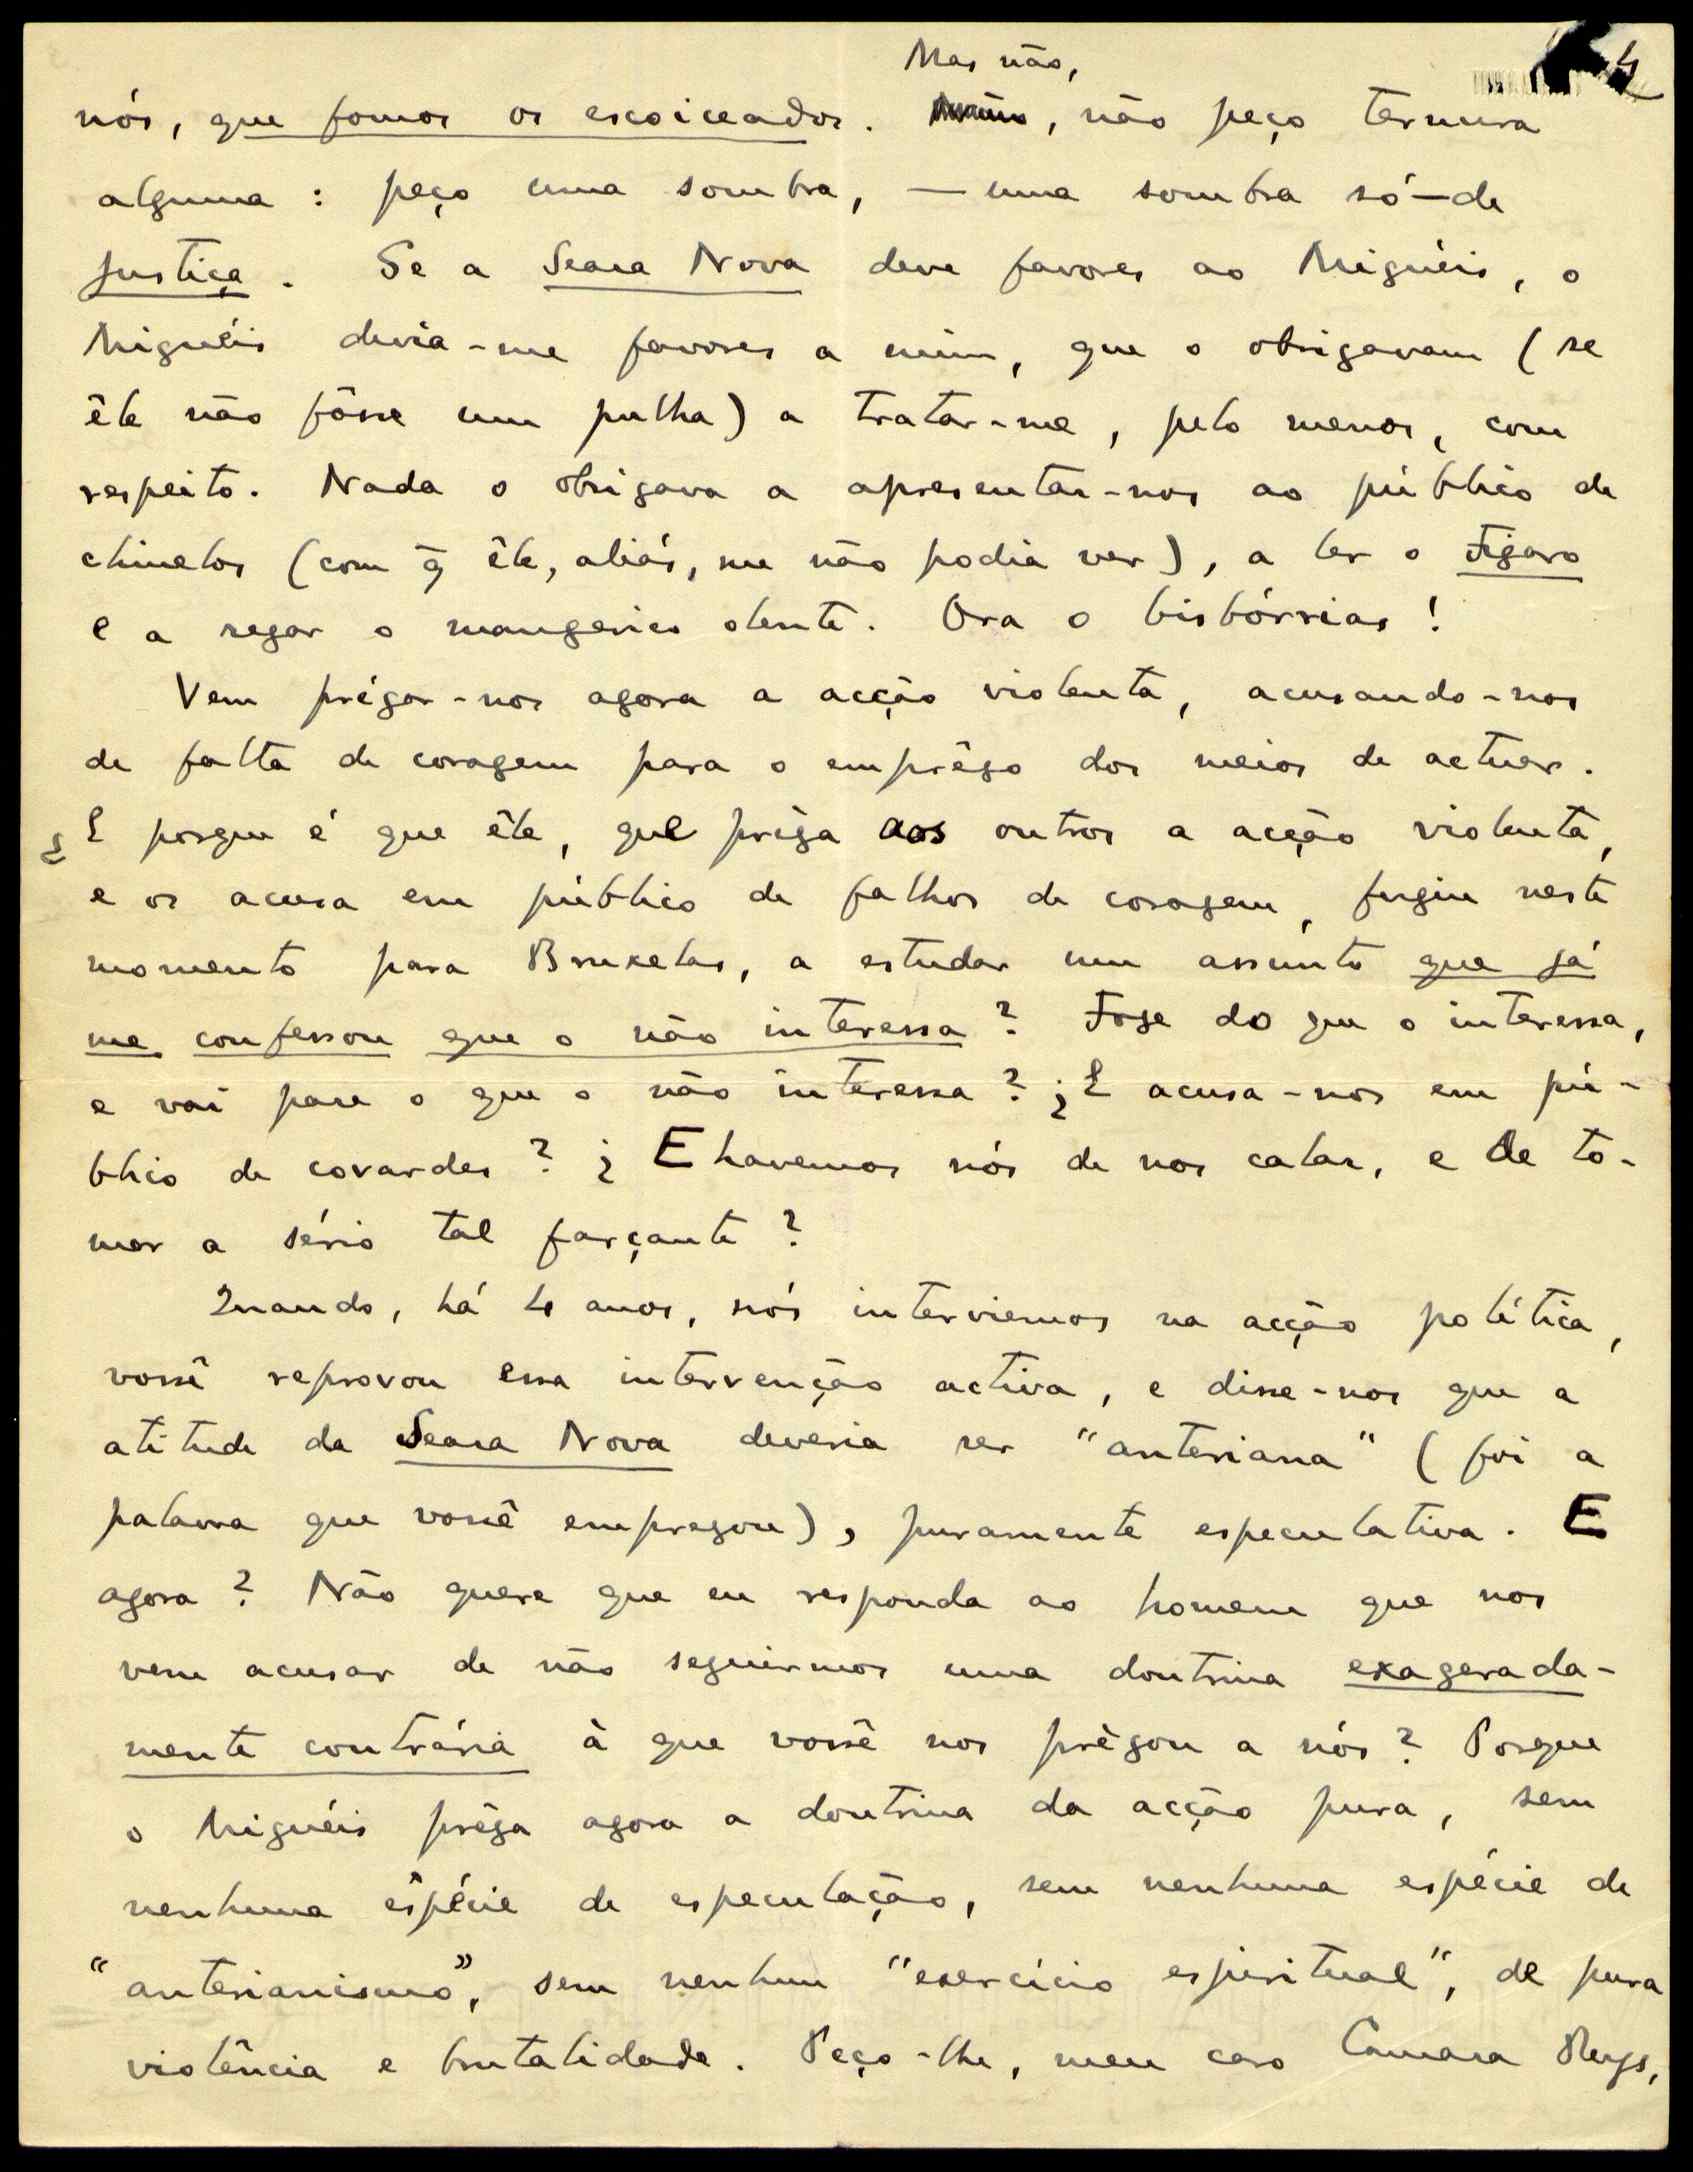 4
Mas não,
nós, que fomos os escoiceados. , não peço ternura
alguma : peço uma sombra, — uma sombra só — de
justiça. Se a Seara Nova deve favores ao Miguéis, o
Miguéis devia-me favores a mim, que o obrigavam (se
êle não fôsse um pulha) a tratar-me, pelo menos, com
respeito. Nada o obrigava a apresentar-nos ao público de
chinelos (com q̃ êle, aliás, me não podia ver), a ler o Figaro
e a regar o mangerico olente. Ora o bisbórrias !
Vem prégar-nos agora a acção violenta, acusando-nos
de falta de coragem para o emprêgo dos meios de actuar.
¿E porque é que êle, que préga aos outros a acção violenta,
e os acusa em público de falhos de coragem, fugiu neste
momento para Bruxelas, a estudar um assúnto que já
me confessou que o não interessa ? Foge do que o interessa,
e vai para o que o não interessa ? ¿E acusa-nos em pú-
blico de covardes ? ¿ E havemos nós de nos calar, e de to-
mar a sério tal farçante ?
Quando, há 4 anos, nós interviemos na acção política,
vossê reprovou essa intervenção activa, e disse-nos que a
atitude da Seara Nova deveria ser "anteriana" (foi a
palavra que vossê empregou), puramente especulativa. E
agora ? Não quere que eu responda ao homem que nos
vem acusar de não seguirmos uma doutrina exagerada-
mente contrária à que vossê nos prègou a nós ? Porque
o Miguéis préga agora a doutrina da acção pura, sem
nenhuma espécie de especulação, sem nenhuma espécie de
"anterianismo", sem nenhum "exercício espiritual", de pura
violência e brutalidade. Peço-lhe, meu caro Camara Reys,